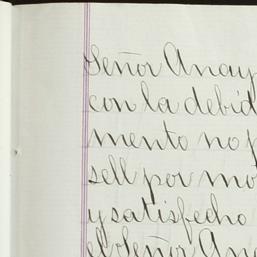 Señor Anay
con la debid
mento no p
sell por mo
y satisfecho
el Señor Ana